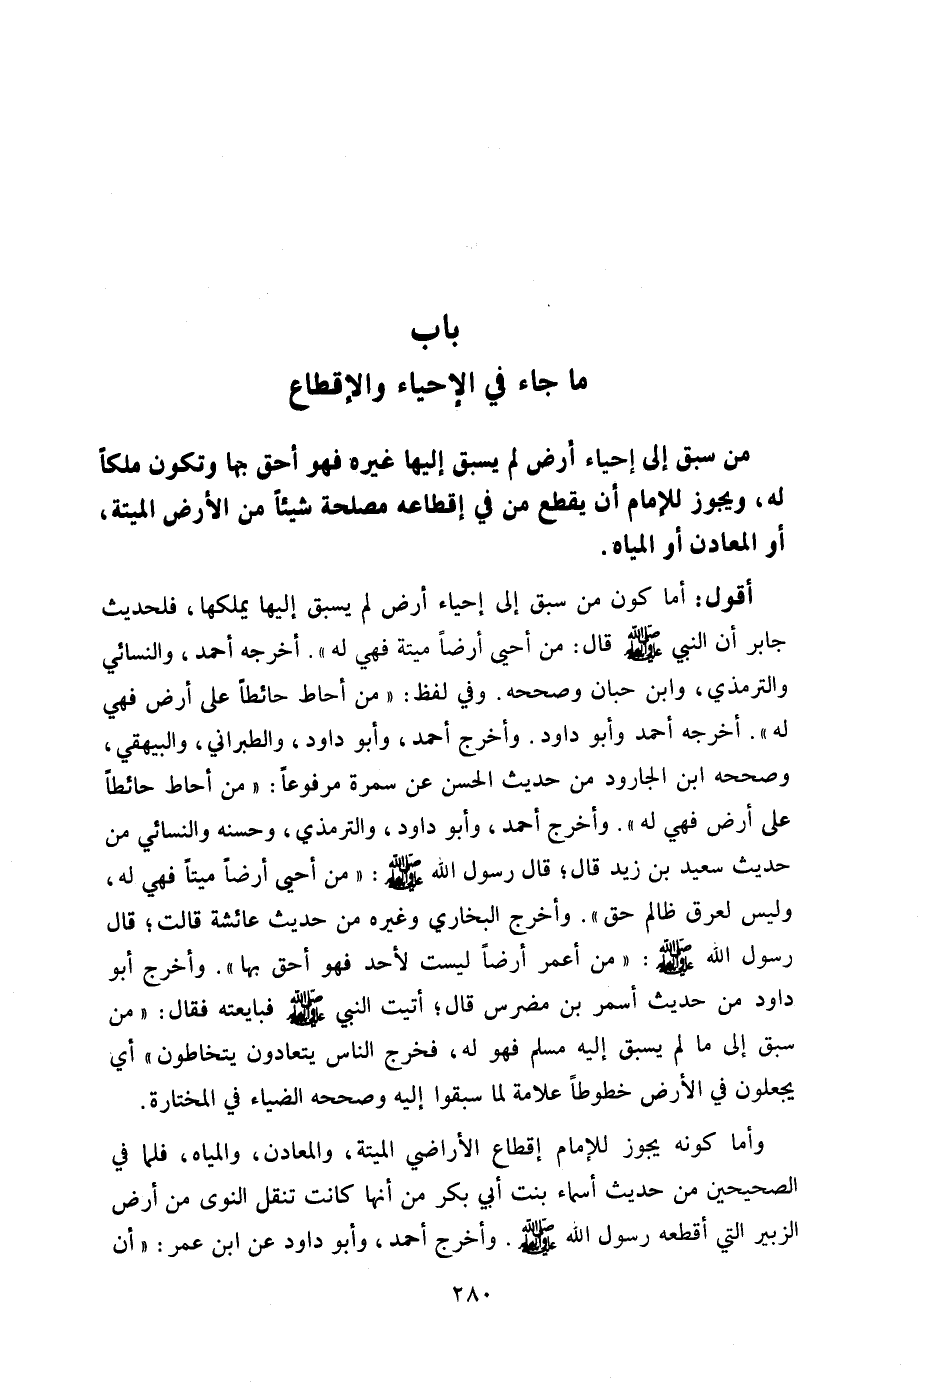 باب
ما جاء في الإحياء والإقطاع
من سبق إلى إحياء أرض لم يسبق إليها غيره فهو أحق بها وتكون ملكاً
له، ويجوز للإمام أن يقطع من في إقطاعه مصلحة شيئاً من الأرض الميتة،
أو المعادن أو المياه.
أقول: أما كون من سبق إلى إحياء أرض لم يسبق إليها يملكها، فلحديث
جابر أن النبي ﷺ قال: من أحيى أرضاً ميتة فهي له». أخرجه أحمد، والنسائي
والترمذي، وابن حبان وصححه. وفي لفظ: «من أحاط حائطاً على أرض فهي
له». أخرجه أحمد وأبو داود. وأخرج أحمد، وأبو داود، والطبراني، والبيهقي،
وصححه ابن الجارود من حديث الحسن عن سمرة مرفوعاً: «من أحاط حائطاً
على أرض فهي له». وأخرج أحمد، وأبو داود، والترمذي، وحسنه والنسائي من
حديث سعيد بن زيد قال؛ قال رسول الله ﷺ: «من أحيى أرضاً ميتاً فهي له،
وليس لعرق ظالم حق». وأخرج البخاري وغيره من حديث عائشة قالت؛ قال
رسول الله ﷺ: «من أعمر أرضاً ليست لأحد فهو أحق بها». وأخرج أبو
داود من حديث أسمر بن مضرس قال؛ أتيت النبي ﷺ فبايعته فقال: «من
سبق إلى ما لم يسبق إليه مسلم فهو له، فخرج الناس يتعادون يتخاطون» أي
يجعلون في الأرض خطوطاً علامة لما سبقوا إليه وصححه الضياء في المختارة.
وأما كونه يجوز للإمام إقطاع الأراضي الميتة، والمعادن، والمياه، فلما في
الصحيحين من حديث أسماء بنت أبي بكر من أنها كانت تنقل النوى من أرض
الزبير التي أقطعه رسول الله ﷺ. وأخرج أحمد، وأبو داود عن ابن عمر: «أن
٢٨٠